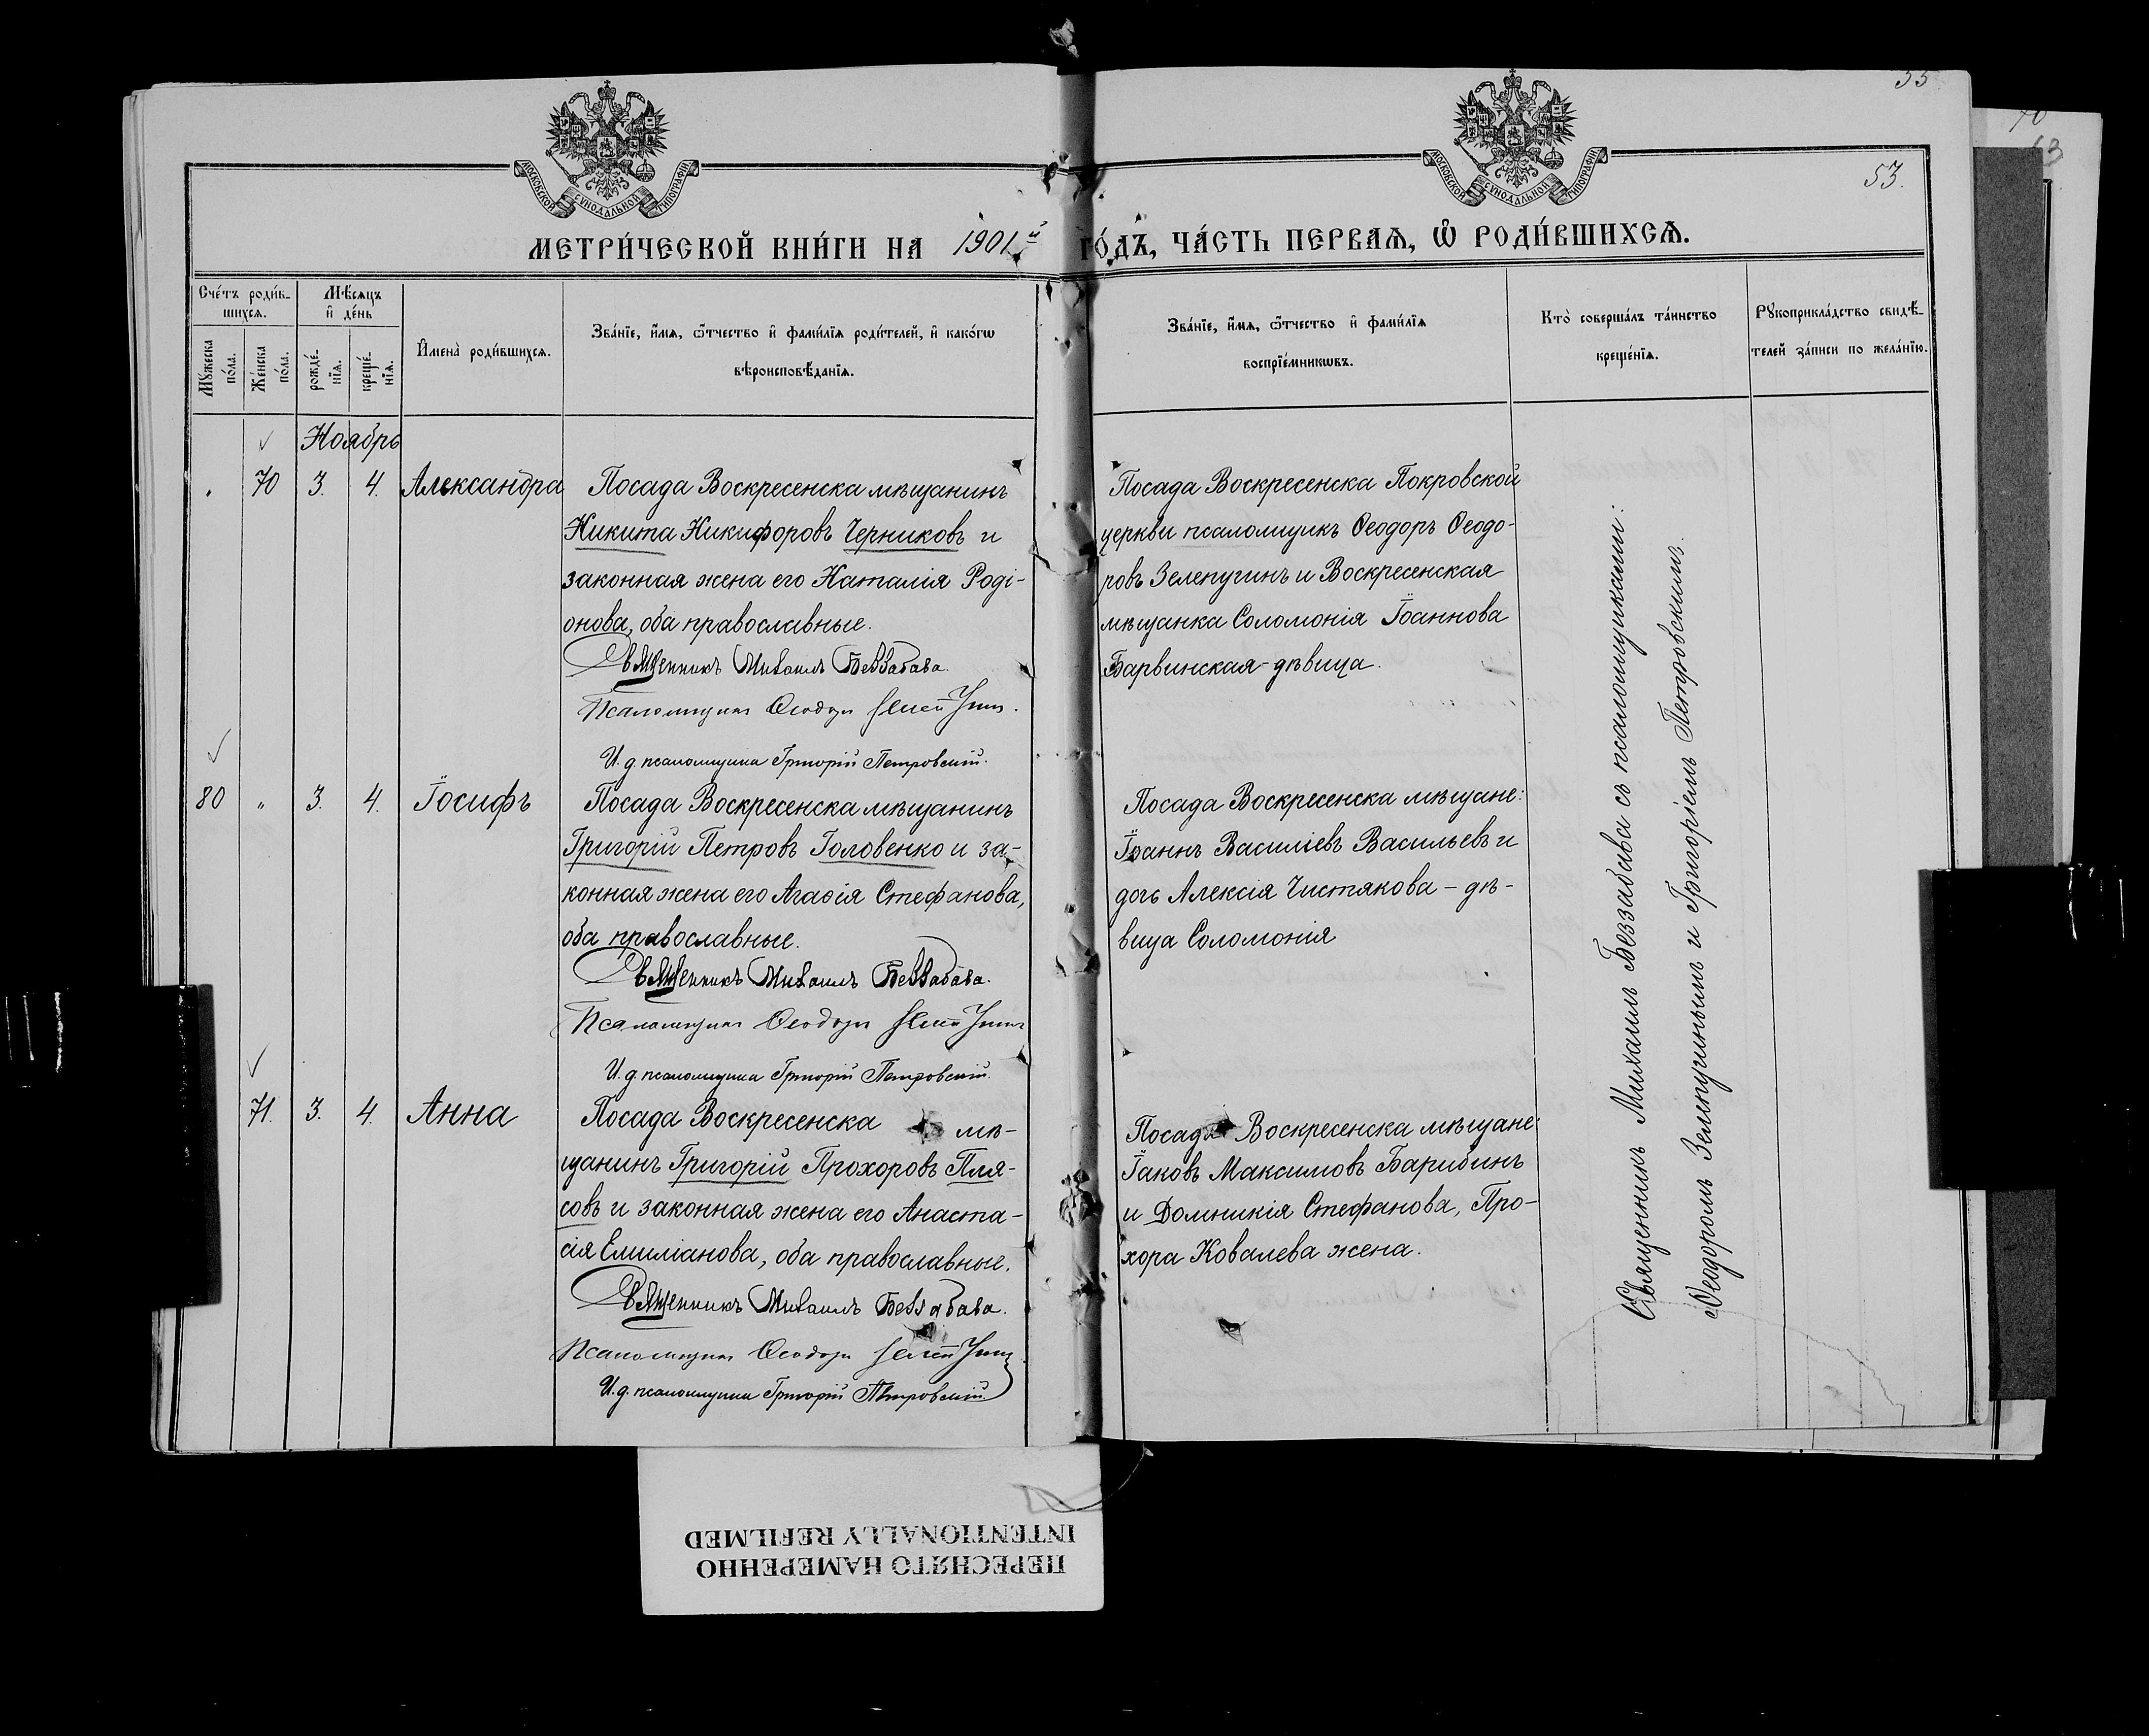 33
70
63
53.
МОСКОВСКОЙ СѴНОДАЛЬНОЙ ТИПОГРАФІИ
МОСКОВСКОЙ СѴНОДАЛЬНОЙ ТИПОГРАФІИ
МЕТРИ́ЧЕСКОЙ КНИ́ГИ НА 1901й ГО́ДЪ, ЧА́СТЬ ПЕРВАѦ, Ѡ҆ РОДИ́ВШИХСѦ.
Сче́тъ роди́в-
шихсѧ.
Мꙋ́жеска
по́ла.
Же́нска
по́ла.
Мѣ́сѧцъ
и҆ де́нь
рожде́-
нїѧ.
креще́-
нїѧ.
И҆мена̀ роди́вшихсѧ.
Зва́нїе, и҆́мѧ, ѻ҆́тчество и҆ фами́лїѧ роди́телей, и҆ како́гѡ
вѣроисповѣ́данїѧ.
Зва́нїе, и҆́мѧ, ѻ҆́тчество и҆ фами́лїѧ
воспрїе́мникѡвъ.
Кто̀ соверша́лъ та́инство
креще́нїѧ.
Рꙋкоприкла́дство свидѣ́-
телей за́писи по жела́нїю.
Ноябрь
70 3. 4. Александра
Посада Воскресенска мѣщанинъ
Никита Никифоровъ Черниковъ и
законная жена его Наталія Роді-
онова, оба православные.
Священникъ Михаилъ Беззабава.
Псаломщикъ Ѳеодоръ Зелепугинъ.
И. д. псаломщика Григорій Петровскій.
Посада Воскресенска Покровской
церкви псаломщикъ Ѳеодоръ Ѳеодо-
ровъ Зелепугинъ и Воскресенская
мѣщанка Соломонія Іоаннова
Барвинская-дѣвица.
80 " 3. 4. Іосифъ
Посада Воскресенска мѣщанинъ
Григорій Петровъ Головенко и за-
конная жена его Агаѳія Стефанова,
оба православные.
Священникъ Михаилъ Беззабава.
Псаломщикъ Ѳеодоръ Зелепугинъ
И. д. псаломщика Григорій Петровскій.
Посада Воскресенска мѣщане:
Іоаннъ Василіевъ Васильевъ и
дочь Алексія Чистякова – дѣ-
вица Соломонія
71. 3. 4. Анна
Посада Воскресенска мѣ-
щанинъ Григорій Прохоровъ Пля-
совъ и законная жена его Анаста-
сія Емиліанова, оба православные.
Священникъ Михаилъ Беззабава.
Псаломщикъ Ѳеодоръ Зелепугинъ
И. д. псаломщика Григорій Петровскій.
Посада Воскресенска мѣщане:
Іаковъ Максимовъ Барибинъ
и Домникія Стефанова, Про-
хора Ковалева жена.
Священникъ Михаилъ Беззабава съ псаломщиками:
Ѳеодоромъ Зелепугинымъ и Григоріемъ Петровскимъ.
ПЕРЕСНЯТО НАМЕРЕННО
INTENTIONALLY REFILMED